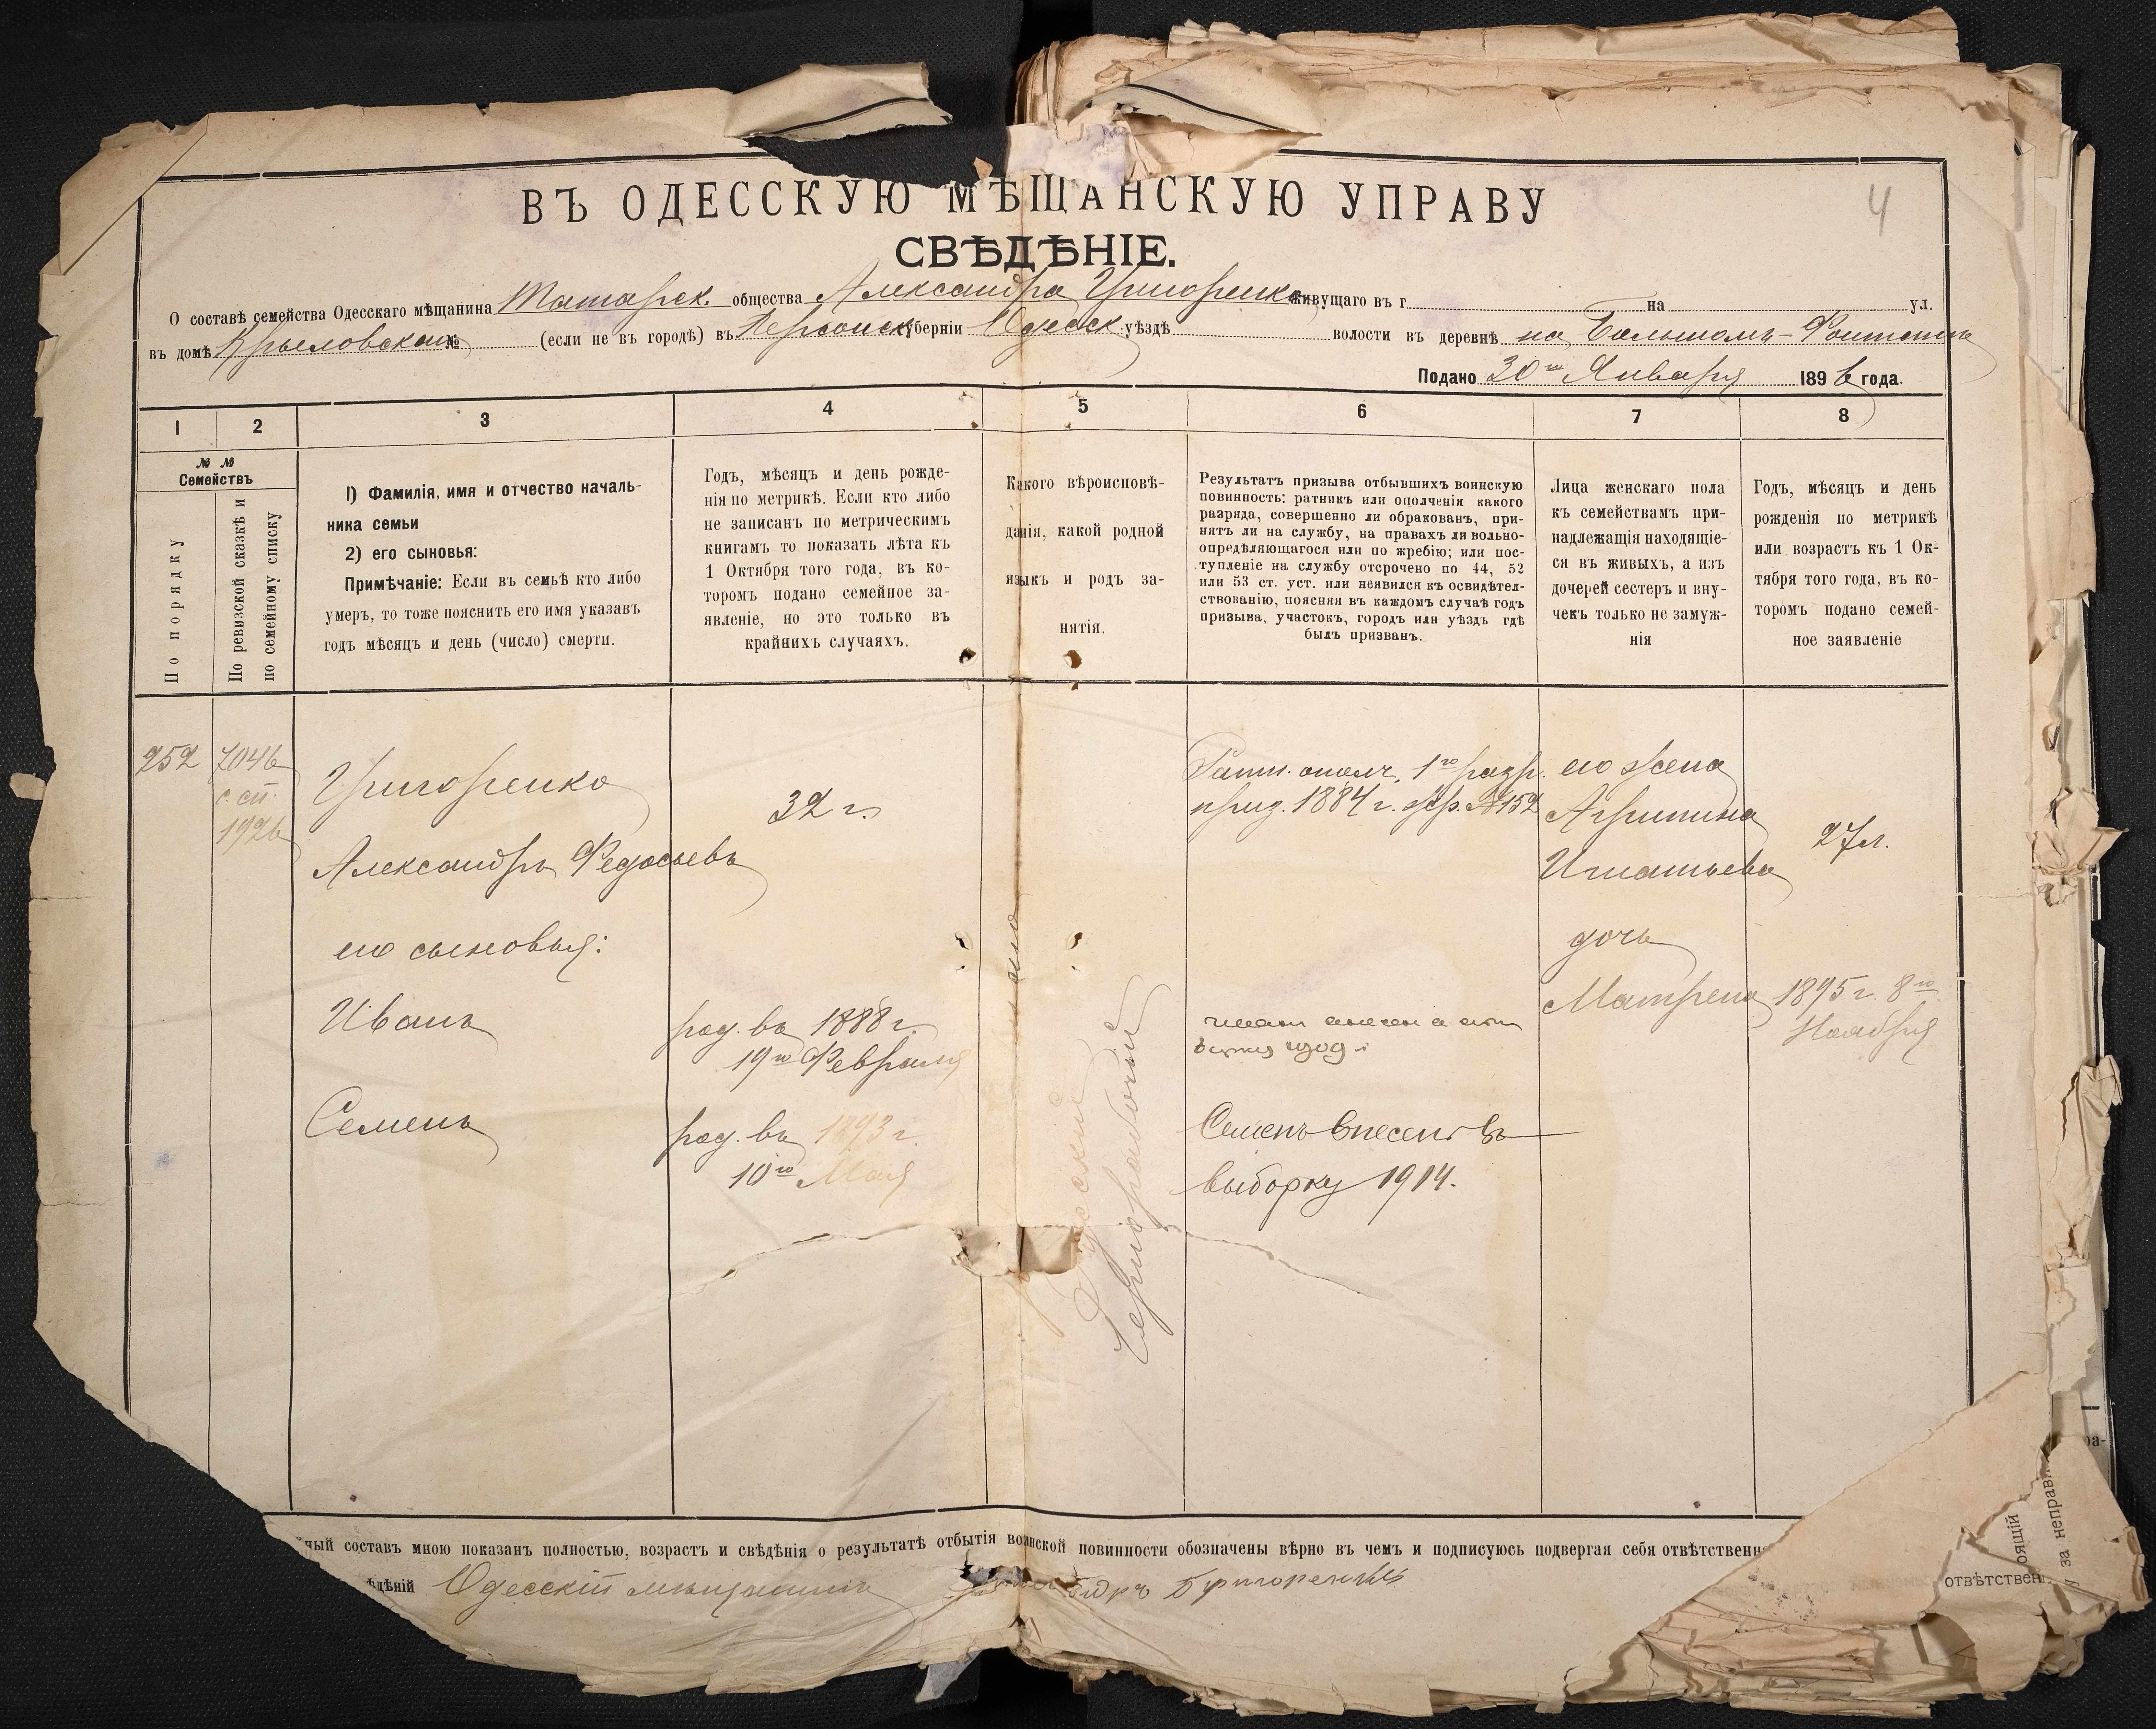 4
ВЪ ОДЕССКУЮ МѢЩАНСКУЮ УПРАВУ
СВѢДѢНІЕ.
О составѣ семейства Одесскаго мѣщанина Татарск. общества Александра Григоренко живущаго въ г. на ул.
въ домѣ Крыловской № (если не въ городѣ) въ Херсонск. губерніи Одесск. уѣздѣ волости въ деревнѣ на Большомъ-Фонтанѣ
Подано 30го Января 1896 года.
1 2 3 4 5 6 7 8
№ № Семействъ
По порядку
По ревизской сказкѣ и по семейному списку
1) Фамилія, имя и отчество началь-
ника семьи
2) его сыновья:
Примѣчаніе: Если въ семьѣ кто либо
умеръ, то тоже пояснить его имя указавъ
годъ мѣсяцъ и день (число) смерти.
Годъ, мѣсяцъ и день рожде-
нія по метрикѣ. Если кто либо
не записанъ по метрическимъ
книгамъ то показать лѣта къ
1 Октября того года, въ ко-
торомъ подано семейное за-
явленіе, но это только въ
крайнихъ случаяхъ.
Какого вѣроисповѣ-
данія, какой родной
языкъ и родъ за-
нятія.
Результатъ призыва отбывшихъ воинскую
повинность: ратникъ или ополченія какого
разряда, совершенно ли обракованъ, при-
нятъ ли на службу, на правахъ ли вольно-
опредѣляющагося или по жребію; или пос-
тупленіе на службу отсрочено по 44, 52
или 53 ст. уст. или неявился къ освидѣтел-
ствованію, поясняя въ каждомъ случаѣ годъ
призыва, участокъ, городъ или уѣздъ гдѣ
былъ призванъ.
Лица женскаго пола
къ семействамъ при-
надлежащія находящіе-
ся въ живыхъ, а изъ
дочерей сестеръ и вну-
чекъ только не замуж-
нія
Годъ, мѣсяцъ и день
рожденія по метрикѣ
или возрастъ къ 1 Ок-
тября того года, въ ко-
торомъ подано семей-
ное заявленіе
252
7046
с. сп.
1926
Григоренко
Александръ Федосьевъ
32 г.
Ратн. ополч. 1го разр.
приз. 1884 г. жр. №152
его жена
Агрипина
Игнатьева
27 л.
его сыновья:
дочь
Матрена
1895 г. 8го
Ноября
Иванъ
род. въ 1888 г.
19го Февраля
Семенъ
род. въ 1893 г.
10го Мая
Русскій
Чернорабочій
Семенъ внесенъ въ
выборку 1914.
ный составъ мною показанъ полностью, возрастъ и свѣдѣнія о результатѣ отбытія воинской повинности обозначены вѣрно въ чемъ и подписуюсь подвергая себя отвѣтственн
ѣдѣній Одесскій мѣщанинъ Григоренко
отвѣтствен
оящій
за неправ